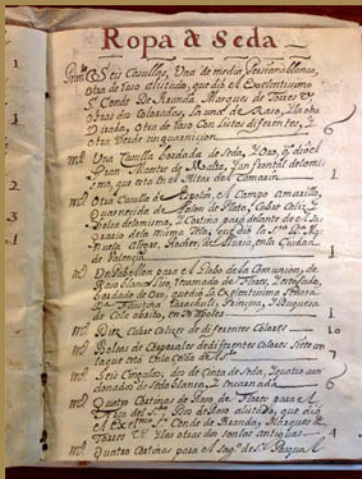 Ropa de Seda
Prim.te Seis Casullas, Una de media Persiana blanca,
otra de raso alistado, que dió el Excelentisimo
Sr. Conde De Aranda, Marques de Torres &c
otras dos Coloradas, la una de Raso, y la otra
otra de raso Con Listas diferentes, y
otra Verde sin guarnicion 6
mas Una Casulla bordada de Seda, y Oro, q. dió el
Gran Maestre de Malta, y un frontal de lo mis-
mo, que esta en el Altar del Camarin 1
mas Otra Casulla de Espolin, el Campo amarillo,
Guarnecida de Galon de Plata, Cubre Caliz, y
Bolsa de lo mismo, y Cortina para delante de el Sa-
grario de la misma tela, que dió la Sra. Da. Ma-
nuela en la Ciudad
de Valencia 1
mas Un Pabellon para el Globo de la Comunion, de
Raso blanco liso, de Flores, y
bordado de Oro, que dió la Excelentisima Señora
Da. Faustina Princesa, y Duquesa
en Napoles 1
mas Diez Cubre Calizes de diferentes Colores 10
mas Bolsas de Corporales de diferentes Colores Siete con
la que está en la Celda de 7
mas Seis Cingulos, dos de Cinta de Seda, y quatro
de Seda blanca, y encarnada 6
mas Quatro Cortinas de Raso de Flores para el
del Sto. Dos de Raso alistado, que dió
el Exelmo. Sr. Conde de Aranda, Marques de
Torres &c y las otras dos son las antiguas 4
mas Quatro Cortinas para el Sagro. de Sn. Pasqual